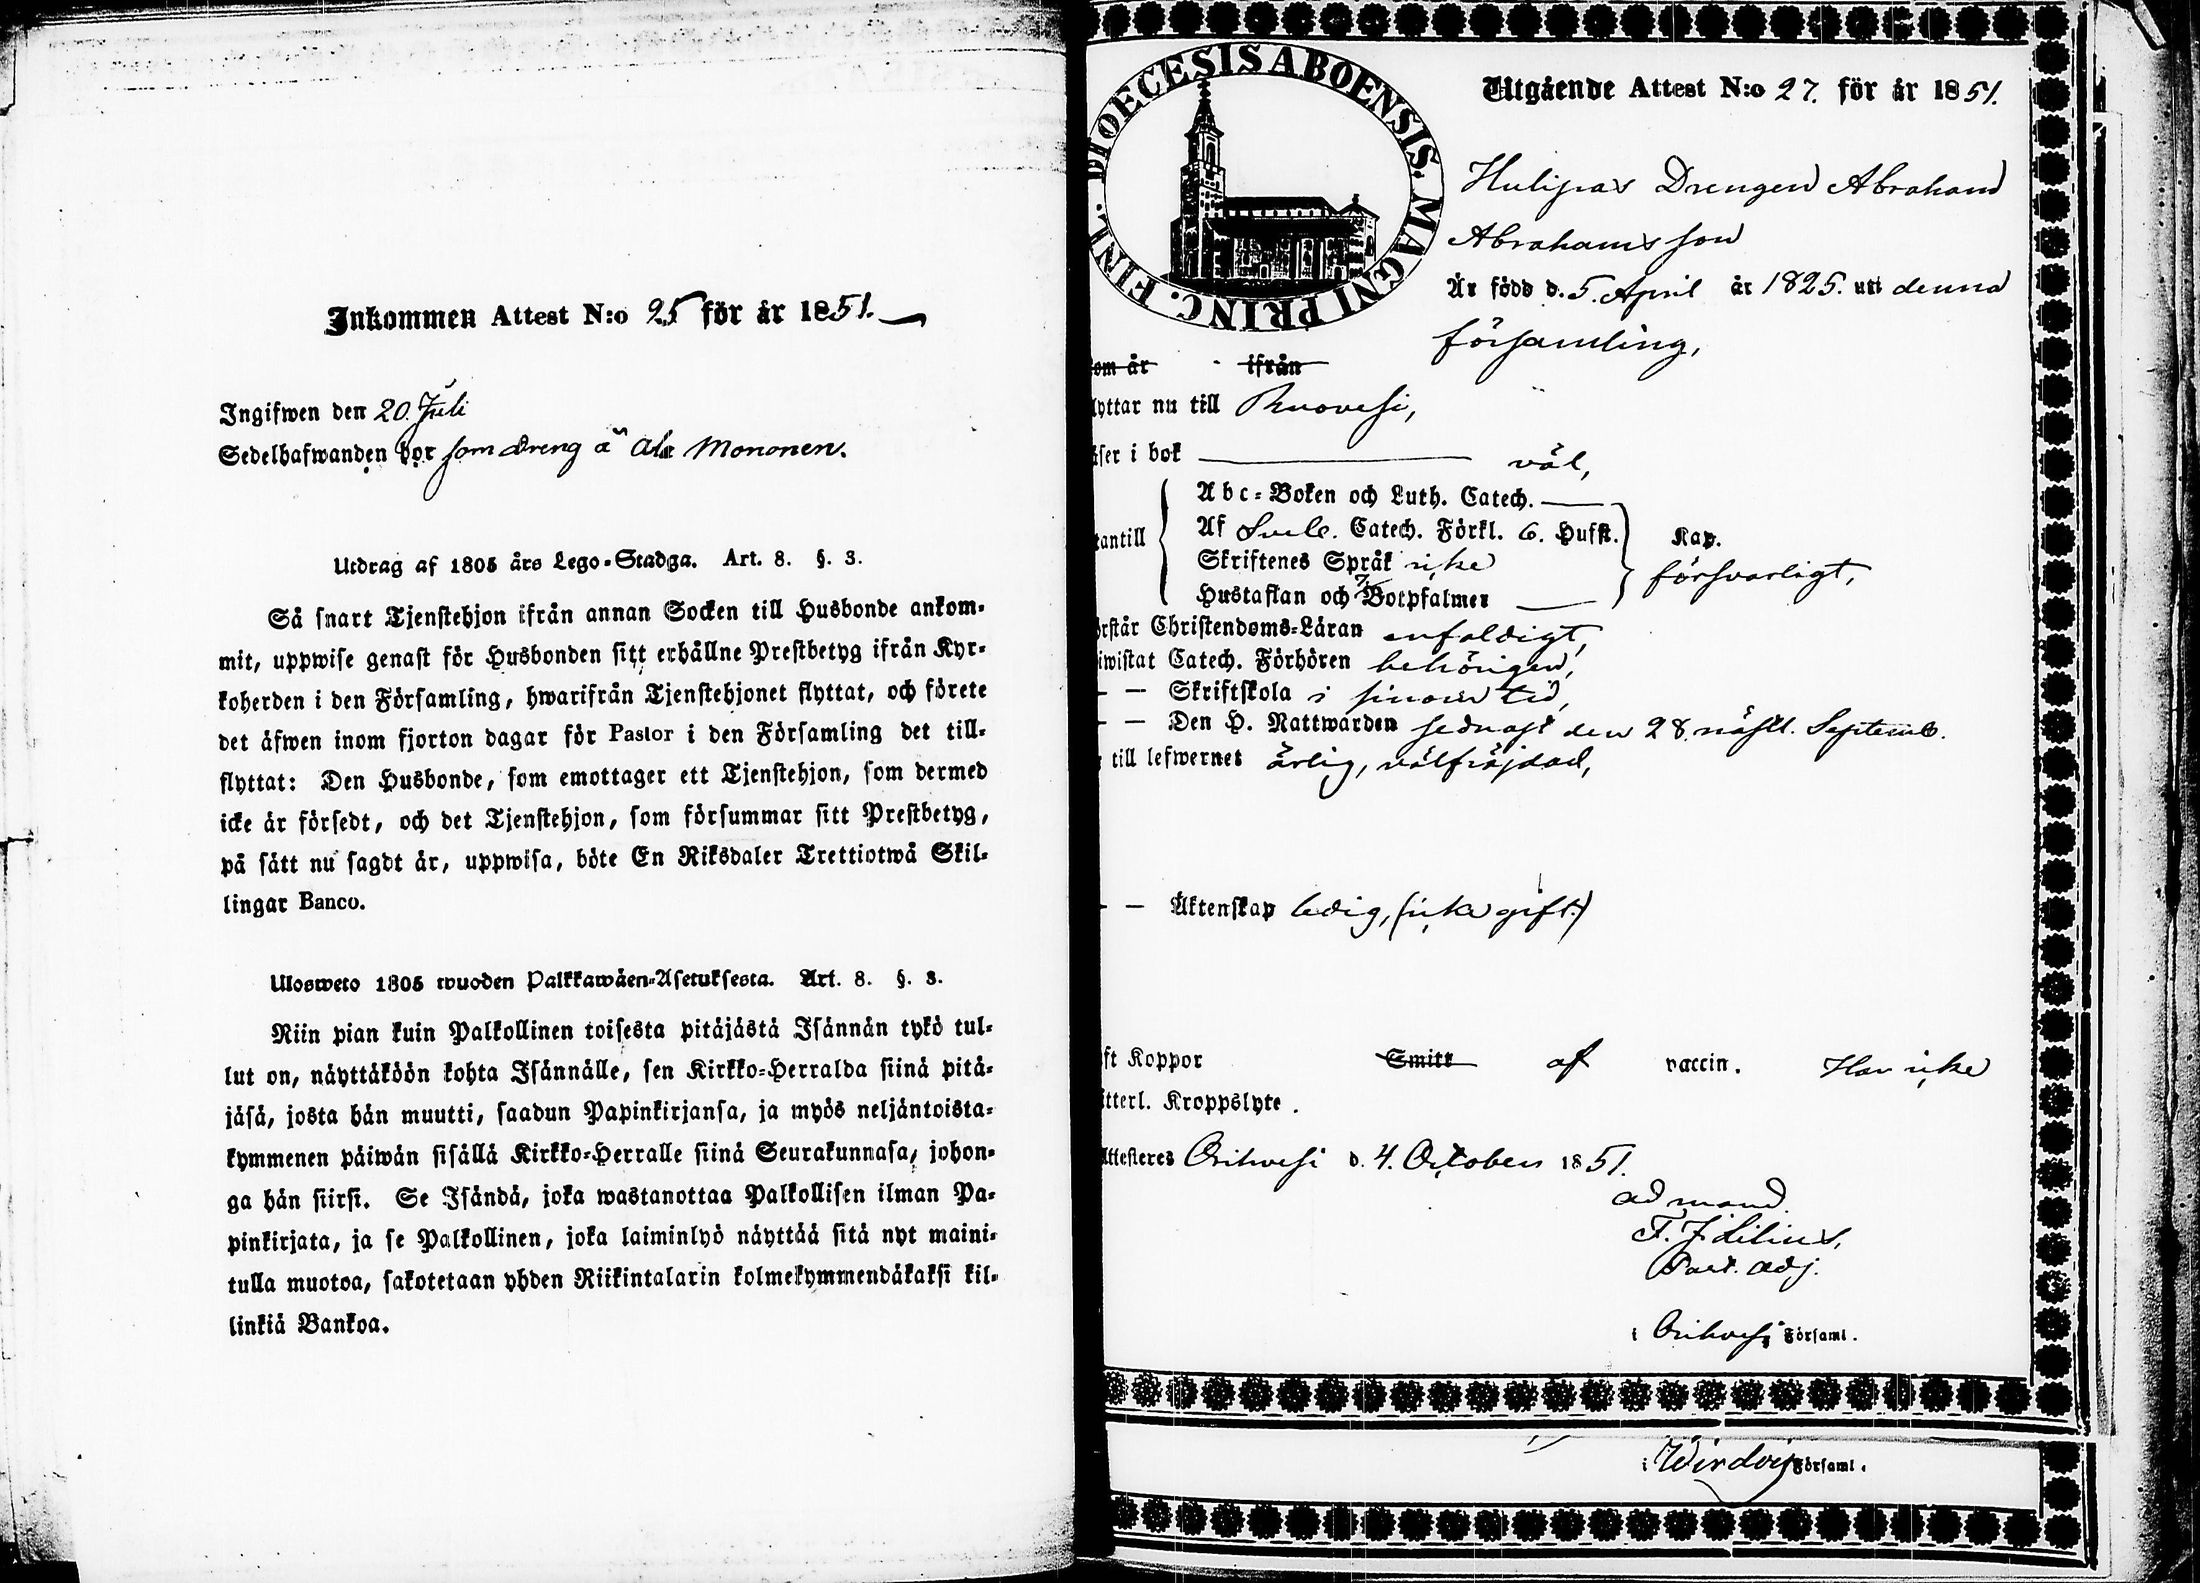 Inkommen Attest N:o 25 för år 1851.
Ingifwen den 20. Juli
Sedelhafwanden bor som dreng å Ala Mononen.
Utdrag af 1805 års Lego-Stadga. Art. 8. §. 3.
Så snart Tjenstehjon ifrån annan Socken till Husbonde ankom-
mit, uppwise genast för Husbonden sitt erhållne Prestbetyg ifrån Kyr-
koherden i den Församling, hwarifrån Tjenstehjonet flyttat, och förete
det äfwen inom fjorton dagar för Pastor i den Församling det till-
flyttat: Den Husbonde, som emottager ett Tjenstehjon, som dermed
icke är försedt, och det Tjenstehjon, som försummar sitt Prestbetyg,
på sätt nu sagdt är, uppwisa, böte En Riksdaler Trettiotwå Skil-
lingar Banco.
Ulosweto 1805 wuoden Palkkawäen-Asetuksesta. Art. 8. §. 3.
Niin pian kuin Palkollinen toisesta pitäjästä Isännän tykö tul-
lut on, näyttäköön kohta Isännälle, sen Kirkko-Herralda siinä pitä-
jäsä, josta hän muutti, saadun Papinkirjansa, ja myös neljäntoista-
kymmenen päiwän sisällä Kirkko-Herralle siinä Seurakunnasa, johon-
ga hän siirsi. Se Isändä, joka wastanottaa Palkollisen ilman Pa-
pinkirjata, ja se Palkollinen, joka laiminlyö näyttää sitä nyt maini-
tulla muotoa, sakotetaan yhden Riikintalarin kolmekymmendäkaksi kil-
linkiä Bankoa.
FINL. DIOECESIS ABOENSIS. MAGNI PRINC.
Utgående Attest N:o 27. för år 1851.
Hulipas Drengen Abraham
Abrahamsson
Är född d. 5. April år 1825. uti denna
församling,
om år ifrån
lyttar nu till Ruovesi,
äser i bok väl,
Abc-Boken och Luth. Catech.
Af Sveb. Catech. Förkl. 6. Hufst. Kap.
tantill
Skriftenes Språk icke
försvarligt,
Hustaflan och 7 Botpsalmer
örstår Christendoms-Läran enfaldigt,
iwistat Catech. Förhören behörigen,
— — Skriftskola i sinom tid,
— — Den H. Nattwarden sednast den 28. nästl. Septemb.
till lefwernet ärlig, välfräjdad,
— — Äktenskap ledig, (icke gift.)
ft Koppor Smitt af vaccin. Har icke
itterl. Kroppslyte.
Attesteres Orihvesi d. 4. October 1851.
ad mand.
F. J. Lilius,
Past. adj.
i Orihvesi Församl.
i Wirdois Församl.